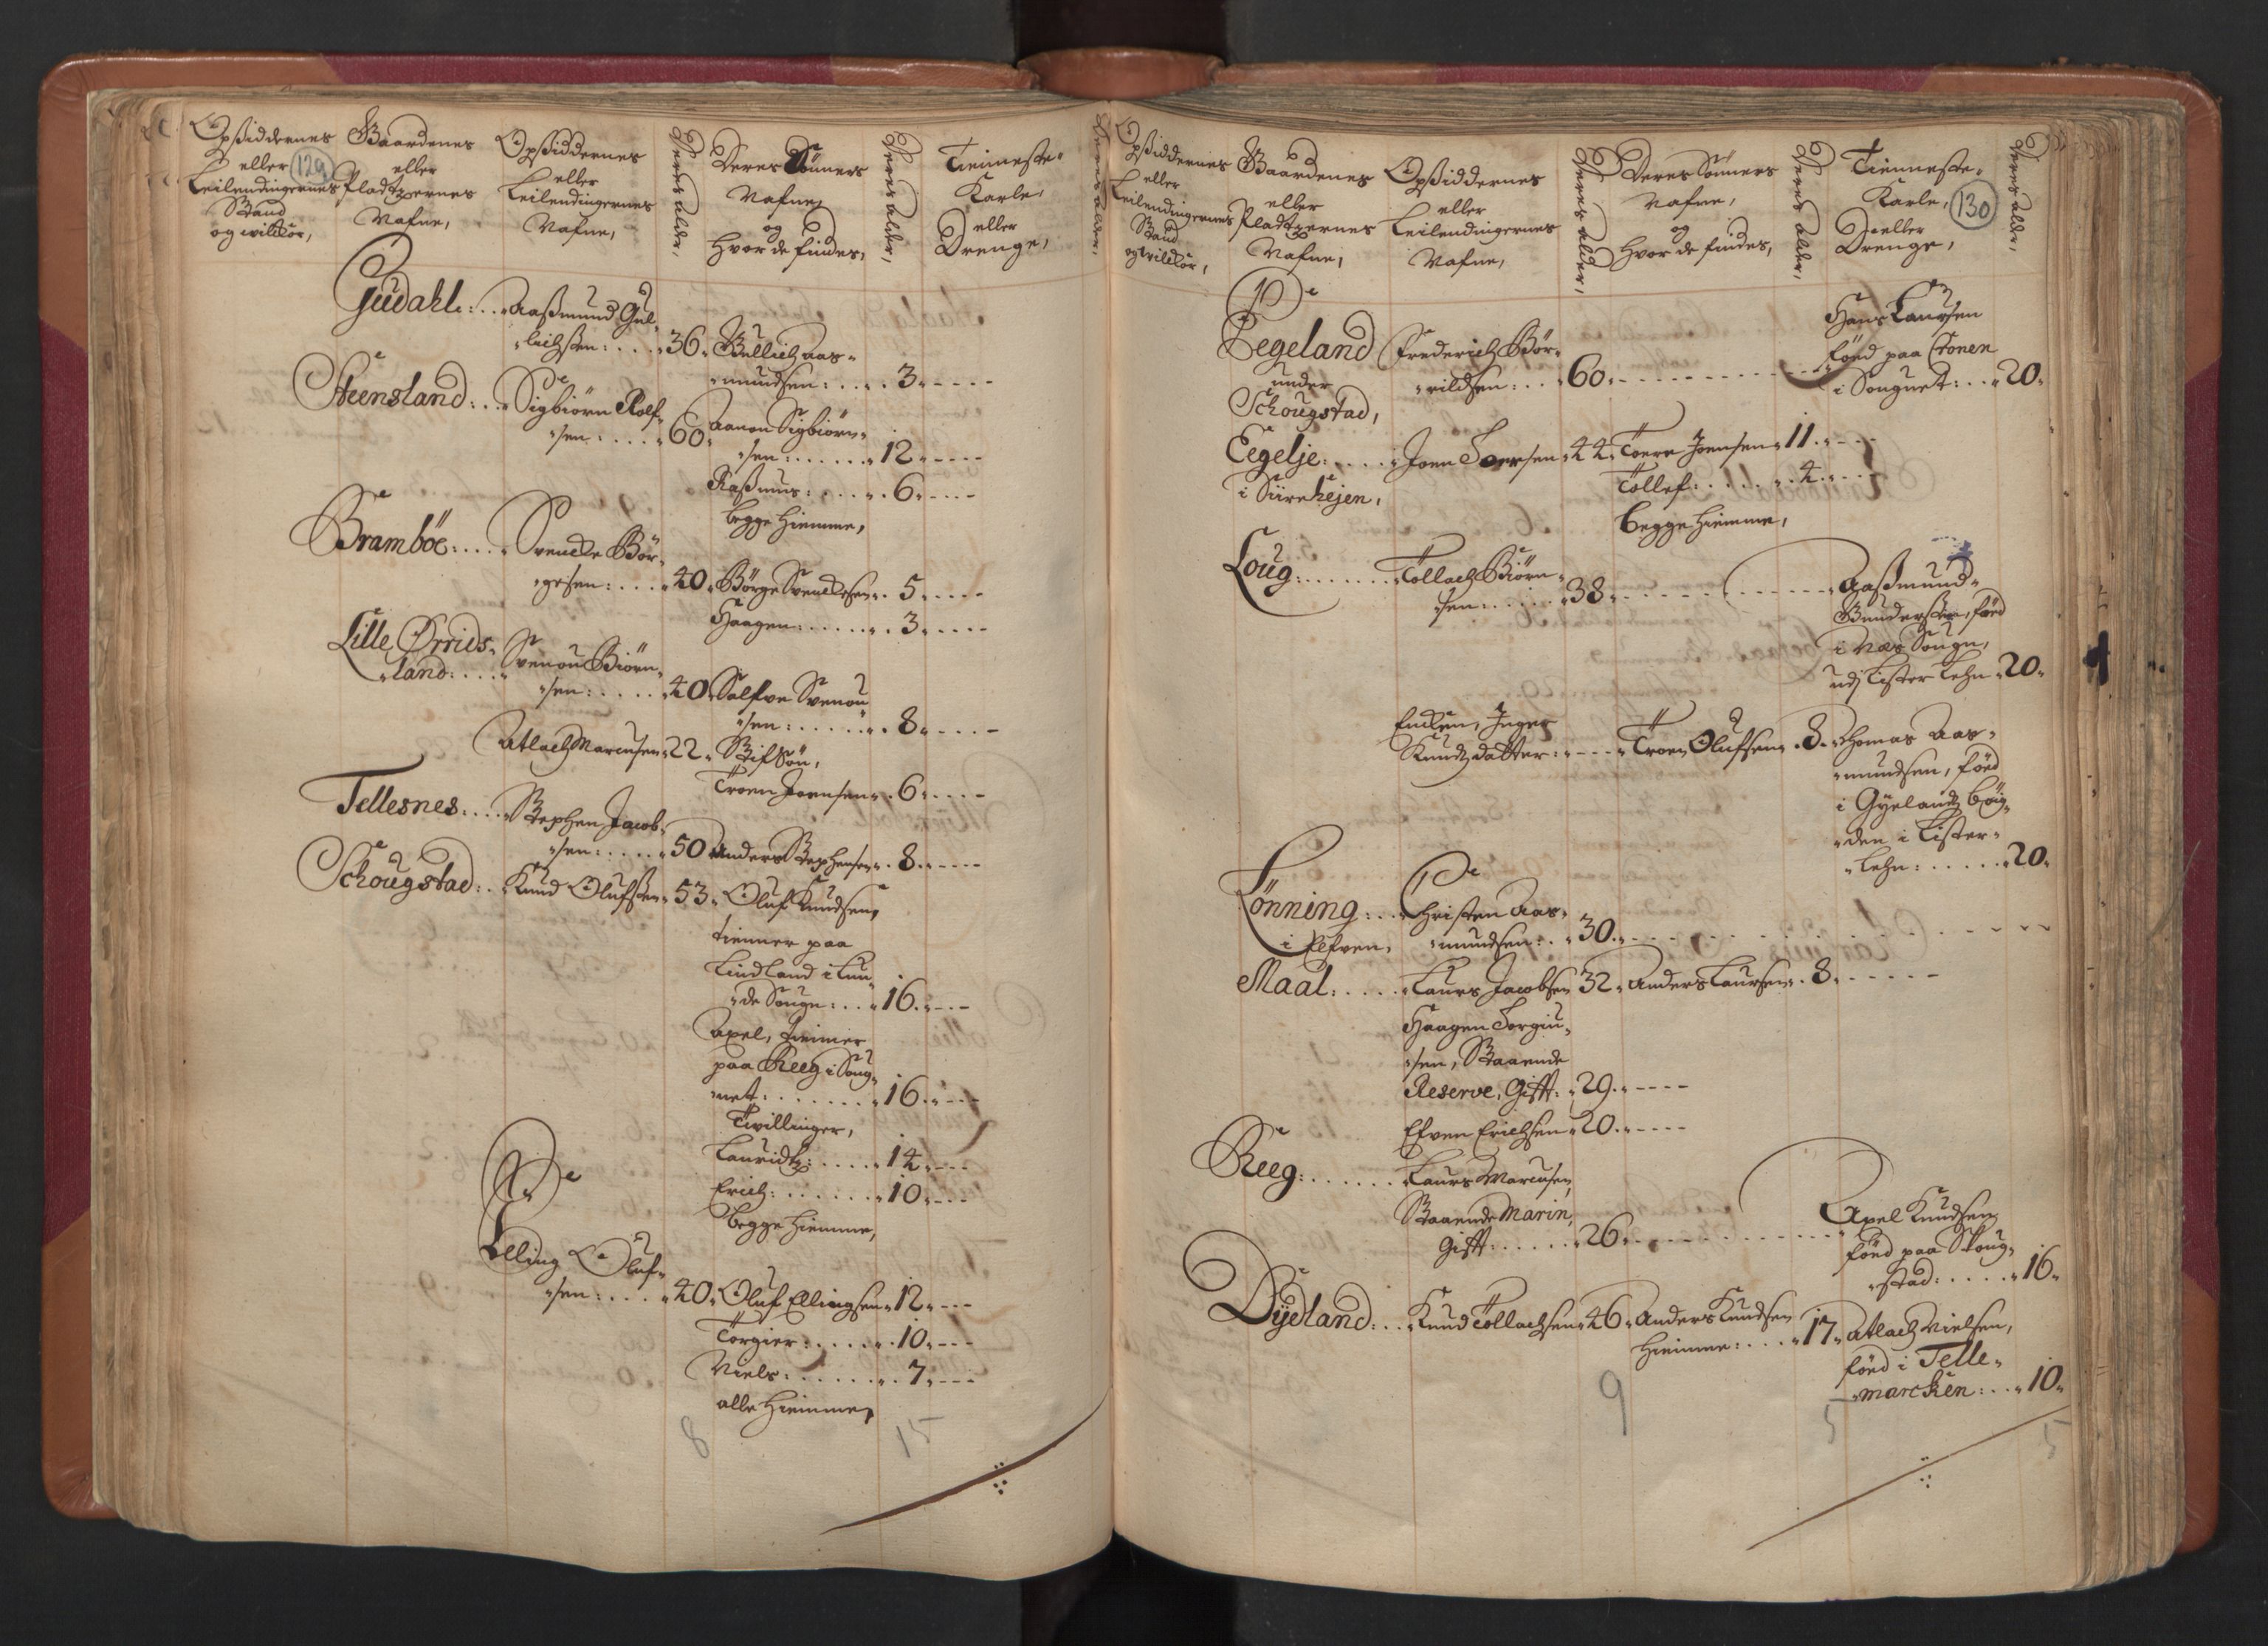 129
Opsiddernes
eller
Leilendingernes
Stand
og vilkor,
Gaardenes
eller
Pladtzernes
Nafne,
Opsiddernes
eller
Leilendingernes
Nafne,
Deres alder,
Deres Sönners
Nafne,
og
hvor de findes,
Deres alder,
Tienneste-
Karle,
eller
Drenge,
Deres alder,
Gudahl: .. Aasmund Gul-
lichsen: .... 36. Gullich Aas-
mundsen: .... 3.
Steensland: .. Sigbiörn Rolf-
sen: .... 60. Aanon Sigbiörn-
sen: ...... 12.
Rasmus: .... 6.
begge hiemme,
Bramböe: .... Svencke Bör-
gesen: .... 40. Börge Svenckesen. 5.
Haagen: ..... 3.
Lille Ørrids-
land: .... Svenou Biörn-
sen: ..... 40. Salfve Svenou
sen: ...... 8.
Atlach Marcusen. 22. Stif Sön,
Troen Joensen. 6.
Tellesnes. ... Stephen Jacob-
sen: ..... 50. Anders Stephensen. 8.
Schougstad: .. Knud Olufsen. 53. Oluf Knudsen,
tienner paa
Lindland i Lun-
de Sougn: ... 16.
Axel, tienner
paa Reeg i Soug-
nett: ....... 16.
Tvillinger,
Lauridtz: ..... 14.
Erich: ....... 10.
begge hiemme,
Elling Oluf-
sen: .... 40. Oluf Ellingsen. 12.
Torgier: ..... 10.
Niels: ...... 7.
alle hiemme,
8 15
130
Opsiddernes
eller
Leilendingernes
Stand
og vilkor,
Gaardenes
eller
Pladtzernes
Nafne,
Opsiddernes
eller
Leilendingernes
Nafne,
Deres alder,
Deres Sönners
Nafne,
og
hvor de findes,
Deres alder,
Tienneste-
Karle,
eller
Drenge,
Deres alder,
Hans Laursen
Egeland Frederich Bör-
rildsen: ... 60. föed paa Cronen
under i Sougnet: .. 20.
Schougstad,
Eegelje: .... Joen Torersen. 44. Tore Joensen. 11.
i Siirehejen, Tollef: ...... 4.
begge hiemme,
Loug: ....... Tollach Biörn-
sen: ..... 38. Aasmund
Gundersen, föed
i Næs Sougn,
udj Lister Lehn. 20.
Encken, Inger
Knudzdatter: .... Troen Olufsen. 8. Thomas Aas-
mundsen, föed
i Gyeland böig-
den i Lister-
Lehn: ..... 20.
Lönning: .. Christen Aas-
i Elfven, mundsen: .. 30.
Maal: .... Laurs Jacobsen 32. Anders Laursen. 8.
Haagen Torgiu-
sen, Staaende
Reserve, Gift: 29.
Efven Erichsen. 20.
Reeg: ...... Laurs Marcusen,
Staaende Marin,
Gift: ...... 26. Axel Knudsen
föed paa Skoug-
stad: .... 16.
Dydland: .. Knud Tollachsen. 46. Anders Knudsen
hiemme: ... 17. Atlach Nielsen,
föed i Telle-
marcken: .. 10.
9 5 5